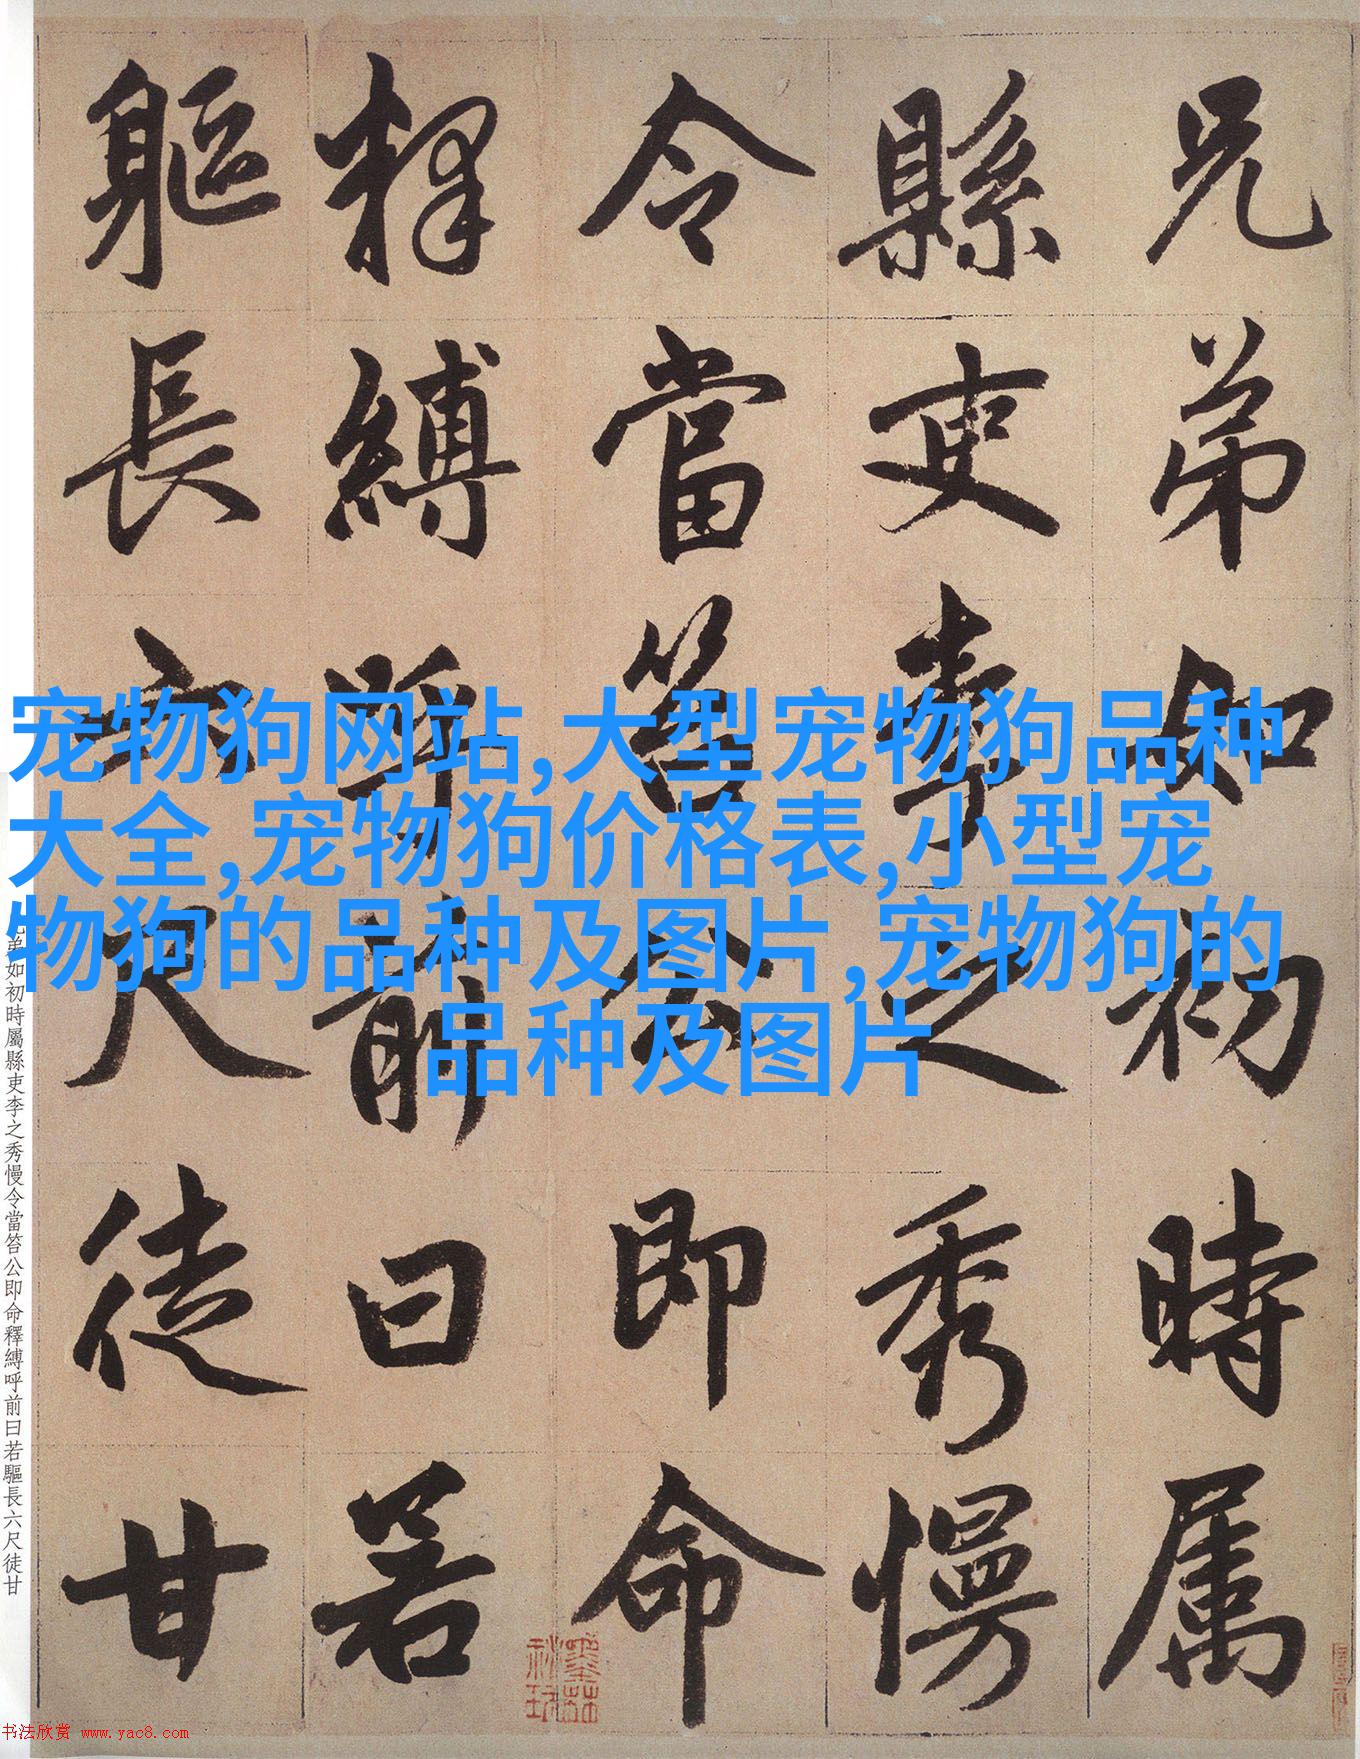 兄弟如初時属
縣吏李之秀慢
令當笞公即命
釋縛呼前曰若
軀長六尺徒甘
宠物狗网站,大型宠物狗品种
大全,宠物狗价格表,小型宠
物狗的品种及图片,宠物狗的
品种及图片
兄弟如初時屬縣吏李之秀慢令當笞公即命釋縛呼前曰若驅長六尺徒甘
书法欣赏 www.yac8.com